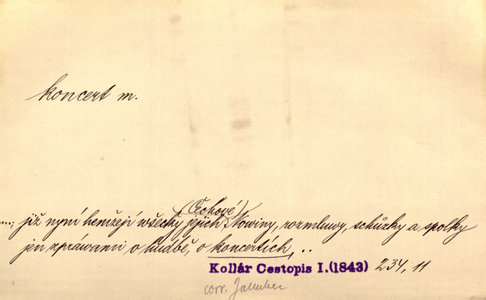 koncert m.
(Čechové)
..., již nyní hemžejí wšecky jejich Nowiny, rozmluwy, schůzky a spolky
jen zprawami o hudbě, o koncertích, ..
Kollár Cestopis I. (1843) 234, 11
corr.